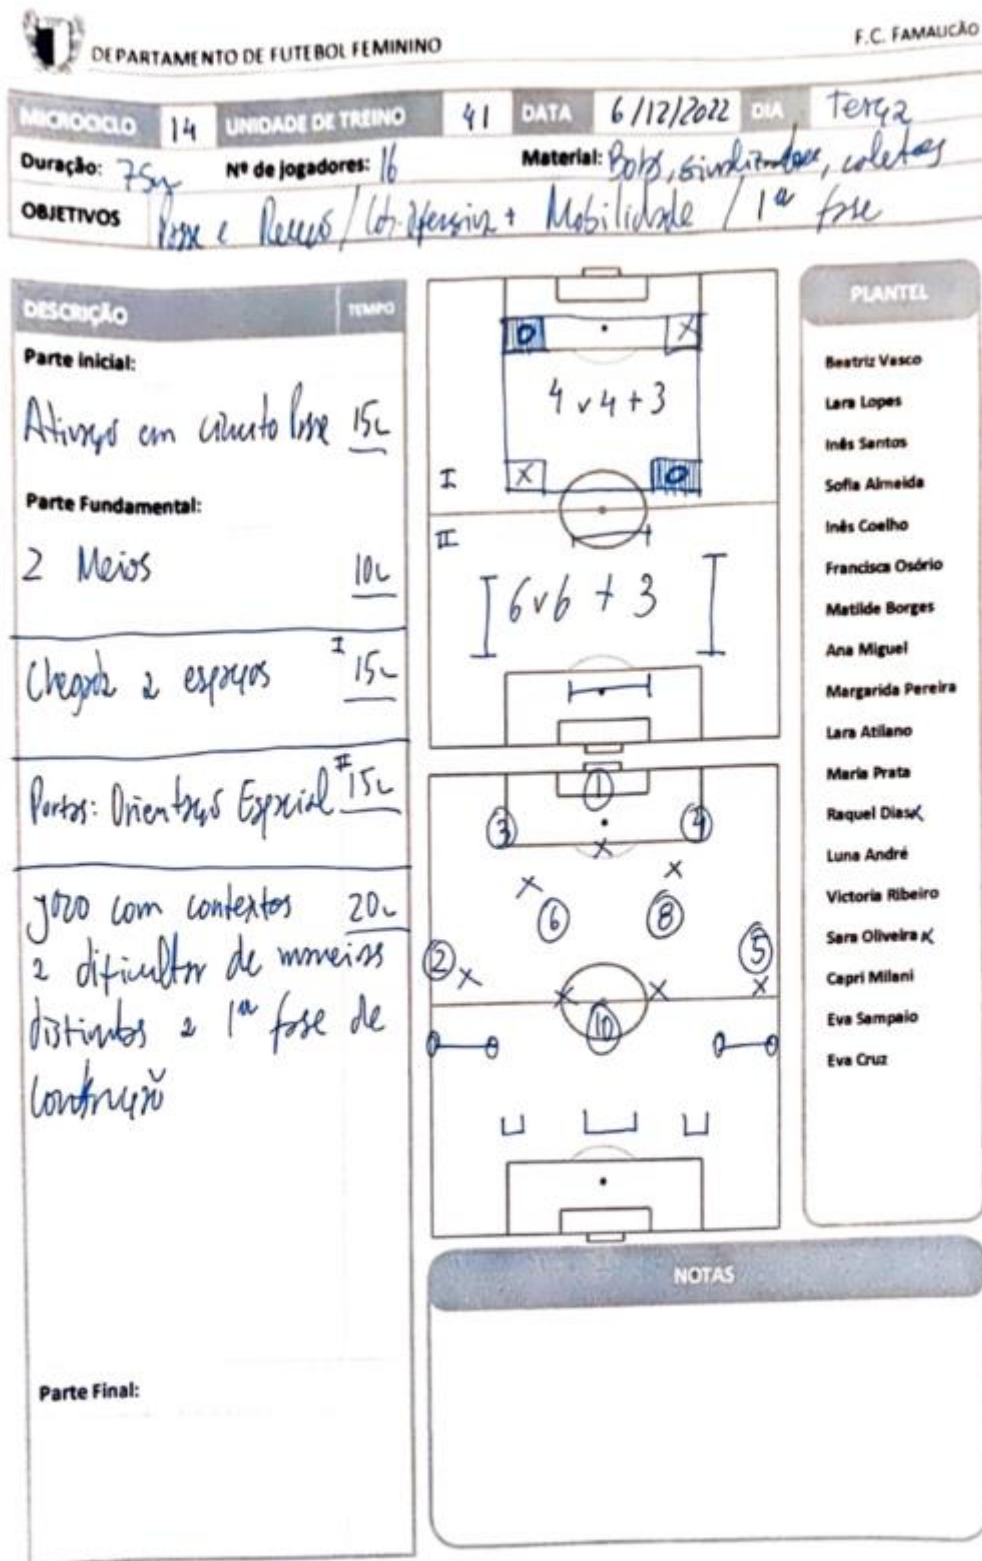 DEPARTAMENTO DE FUTEBOL FEMININO
F.C. FAMALICÃO
MICROCICLO 14 UNIDADE DE TREINO 41 DATA 6/12/2022 DIA Terça
Duração: 75m Nº de jogadores: 16 Material: Bolas, sinalizadores, coletes
OBJETIVOS Passe e Receção / Mobilidade / 1ª fase
DESCRIÇÃO TEMPO
Parte inicial:
Ativação em circuito Passe 15
Parte Fundamental:
2 Meios 10
Chegada a espaços I 15
Portas: Orientação Espacial II 15
Jogo com contextos 20
a dificultar de maneiras
distintas a 1ª fase de
construção
Parte Final:
O X
4 v 4 + 3
X O
I
II
6v6 + 3
1
3 4
X
X X
6 8
2 X 5 X
X X
10
PLANTEL
Beatriz Vasco
Lara Lopes
Inês Santos
Sofia Almeida
Inês Coelho
Francisca Osório
Matilde Borges
Ana Miguel
Margarida Pereira
Lara Atilano
Maria Prata
Raquel Dias X
Luna André
Victoria Ribeiro
Sara Oliveira X
Capri Milani
Eva Sampaio
Eva Cruz
NOTAS